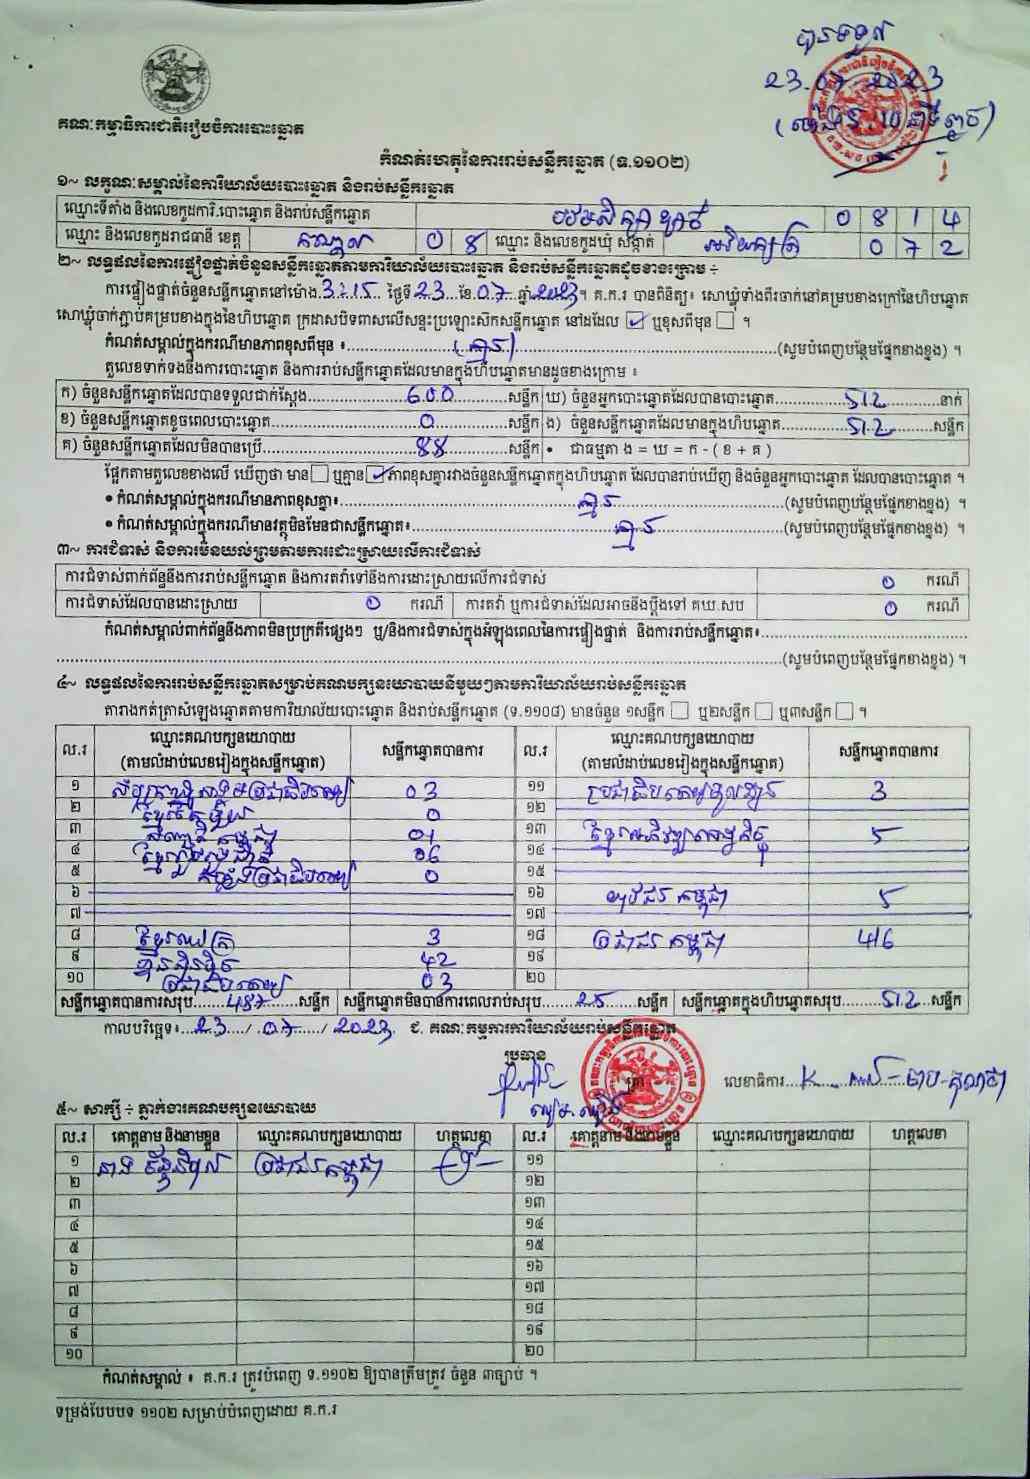 បានទទួល
23.07.2023
គណៈកម្មាធិការជាតិរៀបចំការបោះឆ្នោត
កំណត់ហេតុនៃការរាប់សន្លឹកឆ្នោត (ទ.១១០២)
១~ លក្ខណៈសម្គាល់នៃការិយាល័យបោះឆ្នោត និងរាប់សន្លឹកឆ្នោត
ឈ្មោះទីតាំង និងលេខកូដការិ.បោះឆ្នោត និងរាប់សន្លឹកឆ្នោត 0 8 1 4
ឈ្មោះ និងលេខកូដរាជធានី ខេត្ត កណ្តាល 0 8 ឈ្មោះ និងលេខកូដឃុំ សង្កាត់ 0 7 2
២~ លទ្ធផលនៃការផ្ទៀងផ្ទាត់ចំនួនសន្លឹកឆ្នោតតាមការិយាល័យបោះឆ្នោត និងរាប់សន្លឹកឆ្នោតដូចខាងក្រោម ÷
ការផ្ទៀងផ្ទាត់ចំនួនសន្លឹកឆ្នោតនៅម៉ោង 3:15 ថ្ងៃទី 23 ខែ 07 ឆ្នាំ 2023។ គ.ក.រ បានពិនិត្យ៖ សោឃ្មុំទាំងពីរចាក់នៅគម្របខាងក្រៅនៃហិបឆ្នោត
សោឃ្មុំចាក់ភ្ជាប់គម្របខាងក្នុងនៃហិបឆ្នោត ក្រដាសបិទពាសលើសន្ទះប្រឡោះសិកសន្លឹកឆ្នោត នៅដដែល ☑ ឬខុសពីមុន ☐ ។
កំណត់សម្គាល់ក្នុងករណីមានភាពខុសពីមុន ៖ (គ្មាន) (សូមបំពេញបន្ថែមផ្នែកខាងខ្នង) ។
តួលេខទាក់ទងនឹងការបោះឆ្នោត និងការរាប់សន្លឹកឆ្នោតដែលមានក្នុងហិបឆ្នោតមានដូចខាងក្រោម ៖
ក) ចំនួនសន្លឹកឆ្នោតដែលបានទទួលជាក់ស្តែង 600 សន្លឹក ឃ) ចំនួនអ្នកបោះឆ្នោតដែលបានបោះឆ្នោត 512 នាក់
ខ) ចំនួនសន្លឹកឆ្នោតខូចពេលបោះឆ្នោត 0 សន្លឹក ង) ចំនួនសន្លឹកឆ្នោតដែលមានក្នុងហិបឆ្នោត 512 សន្លឹក
គ) ចំនួនសន្លឹកឆ្នោតដែលមិនបានប្រើ 88 សន្លឹក • ជាធម្មតា ង = ឃ = ក - ( ខ + គ )
ផ្អែកតាមតួលេខខាងលើ ឃើញថា មាន ☐ ឬគ្មាន ☑ ភាពខុសគ្នារវាងចំនួនសន្លឹកឆ្នោតក្នុងហិបឆ្នោត ដែលបានរាប់ឃើញ និងចំនួនអ្នកបោះឆ្នោត ដែលបានបោះឆ្នោត ។
• កំណត់សម្គាល់ក្នុងករណីមានភាពខុសគ្នា៖ គ្មាន (សូមបំពេញបន្ថែមផ្នែកខាងខ្នង) ។
• កំណត់សម្គាល់ក្នុងករណីមានវត្ថុមិនមែនជាសន្លឹកឆ្នោត៖ គ្មាន (សូមបំពេញបន្ថែមផ្នែកខាងខ្នង) ។
៣~ ការជំទាស់ និងការមិនយល់ព្រមតាមការដោះស្រាយលើការជំទាស់
ការជំទាស់ពាក់ព័ន្ធនឹងការរាប់សន្លឹកឆ្នោត និងការតវ៉ាទៅនឹងការដោះស្រាយលើការជំទាស់ 0 ករណី
ការជំទាស់ដែលបានដោះស្រាយ 0 ករណី ការតវ៉ា ឬការជំទាស់ដែលអាចនឹងប្តឹងទៅ គឃ.សប 0 ករណី
កំណត់សម្គាល់ពាក់ព័ន្ធនឹងភាពមិនប្រក្រតីផ្សេងៗ ឬ/និងការជំទាស់ក្នុងអំឡុងពេលនៃការផ្ទៀងផ្ទាត់ និងការរាប់សន្លឹកឆ្នោត៖
(សូមបំពេញបន្ថែមផ្នែកខាងខ្នង) ។
៤~ លទ្ធផលនៃការរាប់សន្លឹកឆ្នោតសម្រាប់គណបក្សនយោបាយនីមួយៗតាមការិយាល័យរាប់សន្លឹកឆ្នោត
តារាងកត់ត្រាសំឡេងឆ្នោតតាមការិយាល័យបោះឆ្នោត និងរាប់សន្លឹកឆ្នោត (ទ.១១០៨) មានចំនួន ១សន្លឹក ☐ ឬ២សន្លឹក ☐ ឬ៣សន្លឹក ☐ ។
ល.រ ឈ្មោះគណបក្សនយោបាយ (តាមលំដាប់លេខរៀងក្នុងសន្លឹកឆ្នោត) សន្លឹកឆ្នោតបានការ ល.រ ឈ្មោះគណបក្សនយោបាយ (តាមលំដាប់លេខរៀងក្នុងសន្លឹកឆ្នោត) សន្លឹកឆ្នោតបានការ
១ 03 ១១ 3
២ 0 ១២
៣ 01 ១៣ 5
៤ 06 ១៤
៥ 0 ១៥
៦ ១៦ យុវជន កម្ពុជា 5
៧ ១៧
៨ 3 ១៨ ប្រជាជន កម្ពុជា 416
៩ 42 ១៩
១០ 03 ២០
សន្លឹកឆ្នោតបានការសរុប 487 សន្លឹក សន្លឹកឆ្នោតមិនបានការពេលរាប់សរុប 25 សន្លឹក សន្លឹកឆ្នោតក្នុងហិបឆ្នោតសរុប 512 សន្លឹក
កាលបរិច្ឆេទ៖ 23 / 07 / 2023 ជ. គណៈកម្មការការិយាល័យរាប់សន្លឹកឆ្នោត
ប្រធាន
លេខាធិការ
៥~ សាក្សី ÷ ភ្នាក់ងារគណបក្សនយោបាយ
ល.រ គោត្តនាម និងនាមខ្លួន ឈ្មោះគណបក្សនយោបាយ ហត្ថលេខា ល.រ គោត្តនាម និងនាមខ្លួន ឈ្មោះគណបក្សនយោបាយ ហត្ថលេខា
១ ប្រជាជន កម្ពុជា ១១
២ ១២
៣ ១៣
៤ ១៤
៥ ១៥
៦ ១៦
៧ ១៧
៨ ១៨
៩ ១៩
១០ ២០
កំណត់សម្គាល់ ៖ គ.ក.រ ត្រូវបំពេញ ទ.១១០២ ឱ្យបានត្រឹមត្រូវ ចំនួន ៣ច្បាប់ ។
ទម្រង់បែបបទ ១១០២ សម្រាប់បំពេញដោយ គ.ក.រ